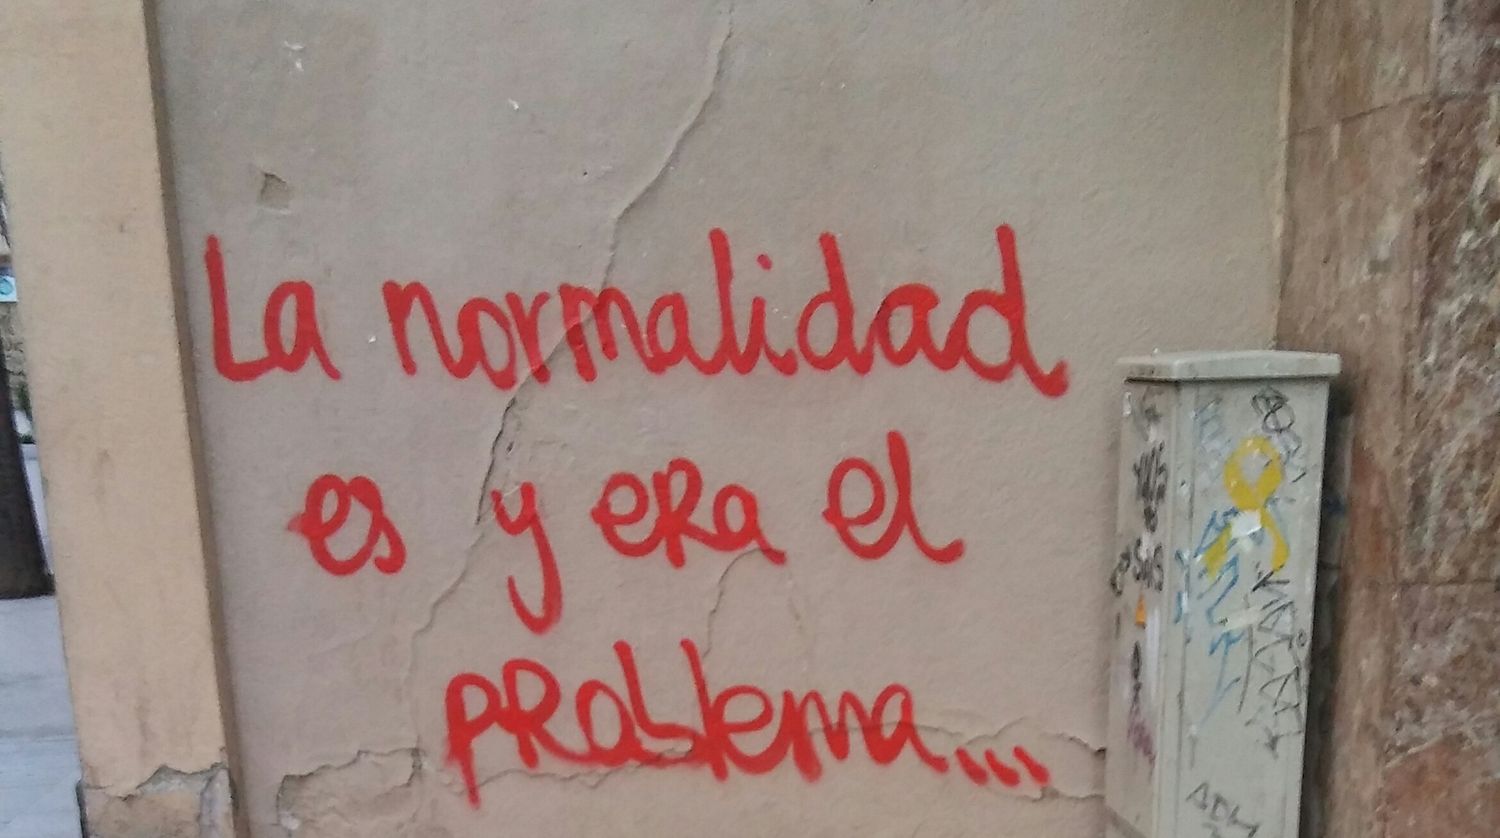 La normalidad
es y era el
problema...